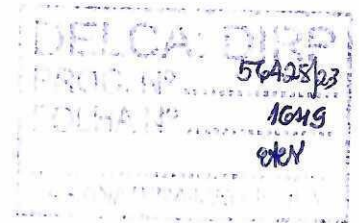 DELCA: DIRP
PROC. Nº 56428/23
FOLHA Nº 1649